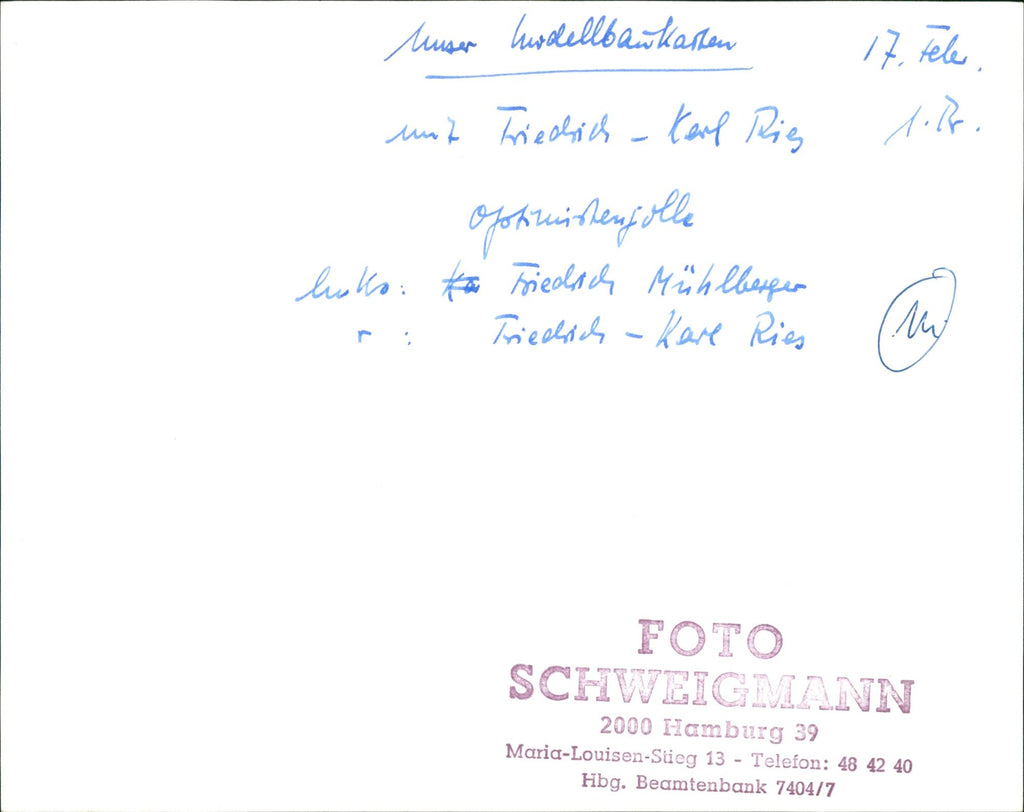 Unser Modellbaukasten 17. Febr.
mit Friedrich-Karl Ries 1. Pr.
Optimistenjolle
links: Friedrich Mühlberger
r : Friedrich-Karl Ries
FOTO
SCHWEIGMANN
2000 Hamburg 39
Maria-Louisen-Stieg 13 - Telefon: 48 42 40
Hbg. Beamtenbank 7404/7